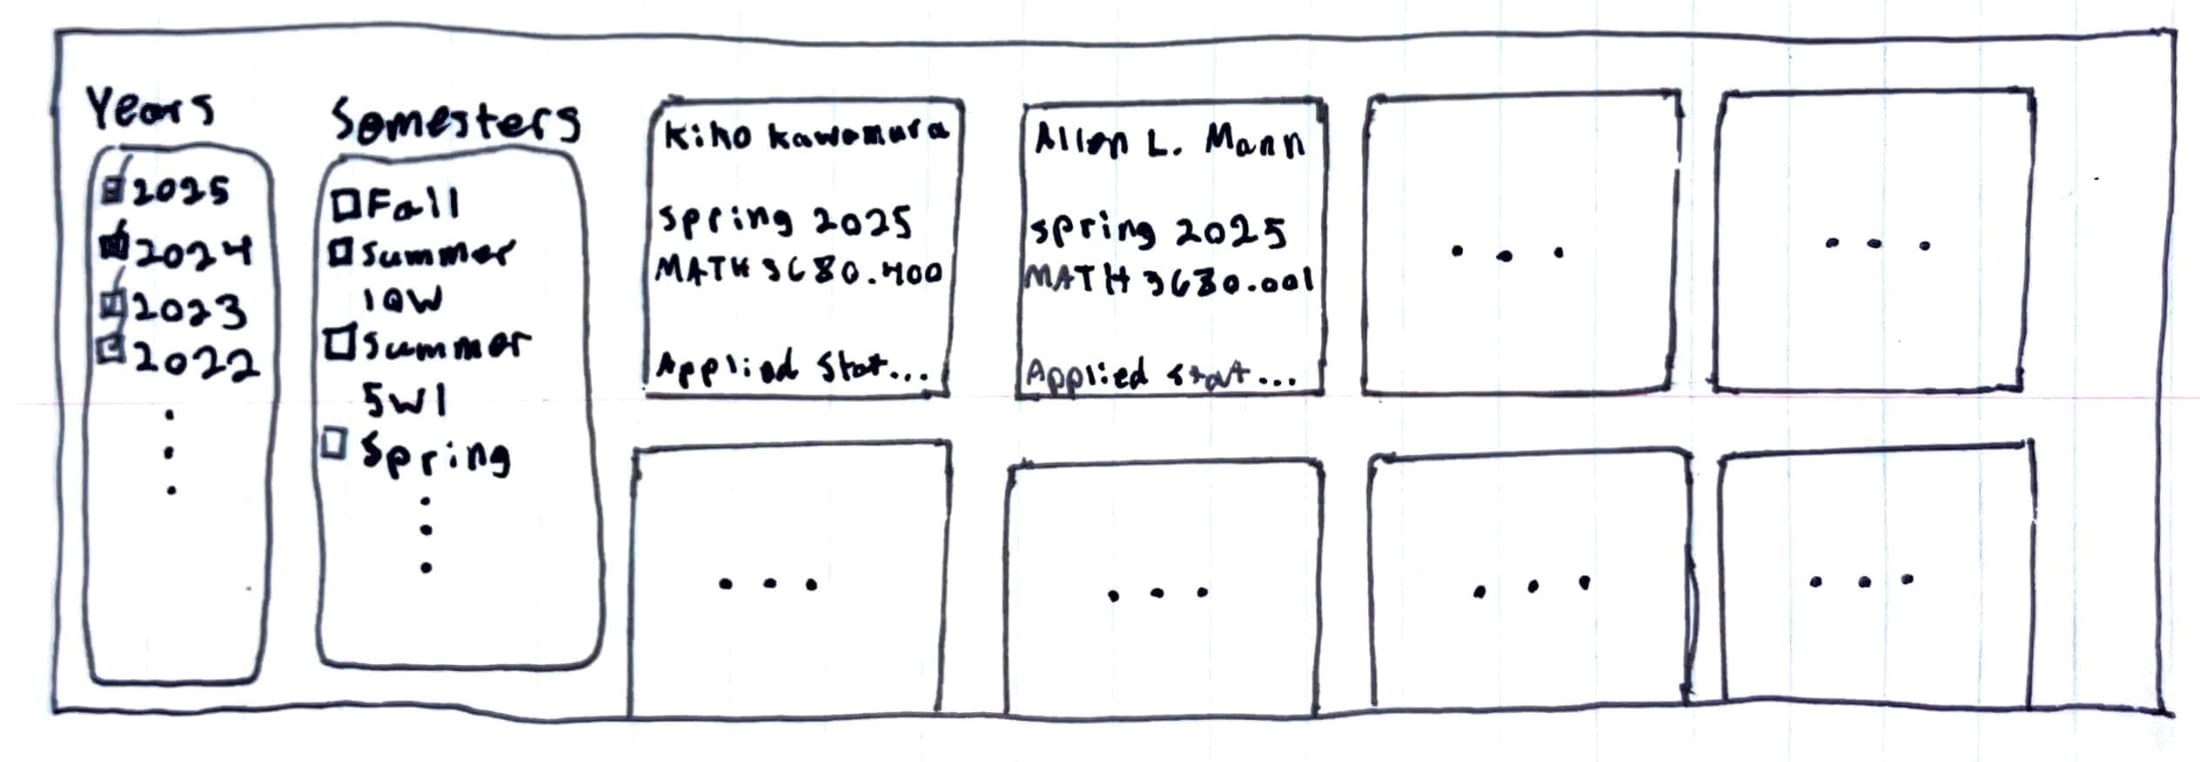 Years
2025
2024
2023
2022
Semesters
Fall
Summer
10W
Summer
5W1
Spring
Kiko Kawamura
Spring 2025
MATH 3680.400
Applied Stat...
Allen L. Mann
Spring 2025
MATH 3680.001
Applied Stat...
...
...
...
...
...
...